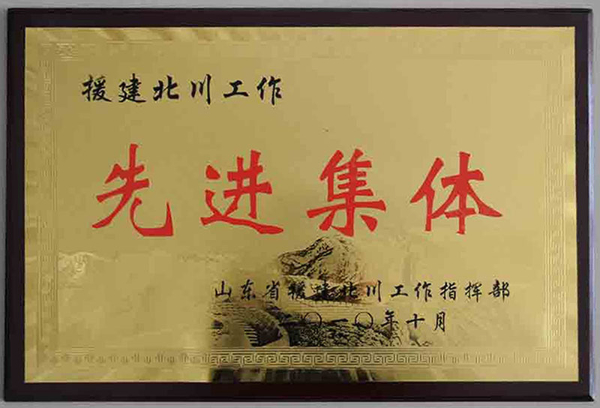 援建北川工作
先进集体
山东省援建北川工作指挥部
二〇一〇年十月